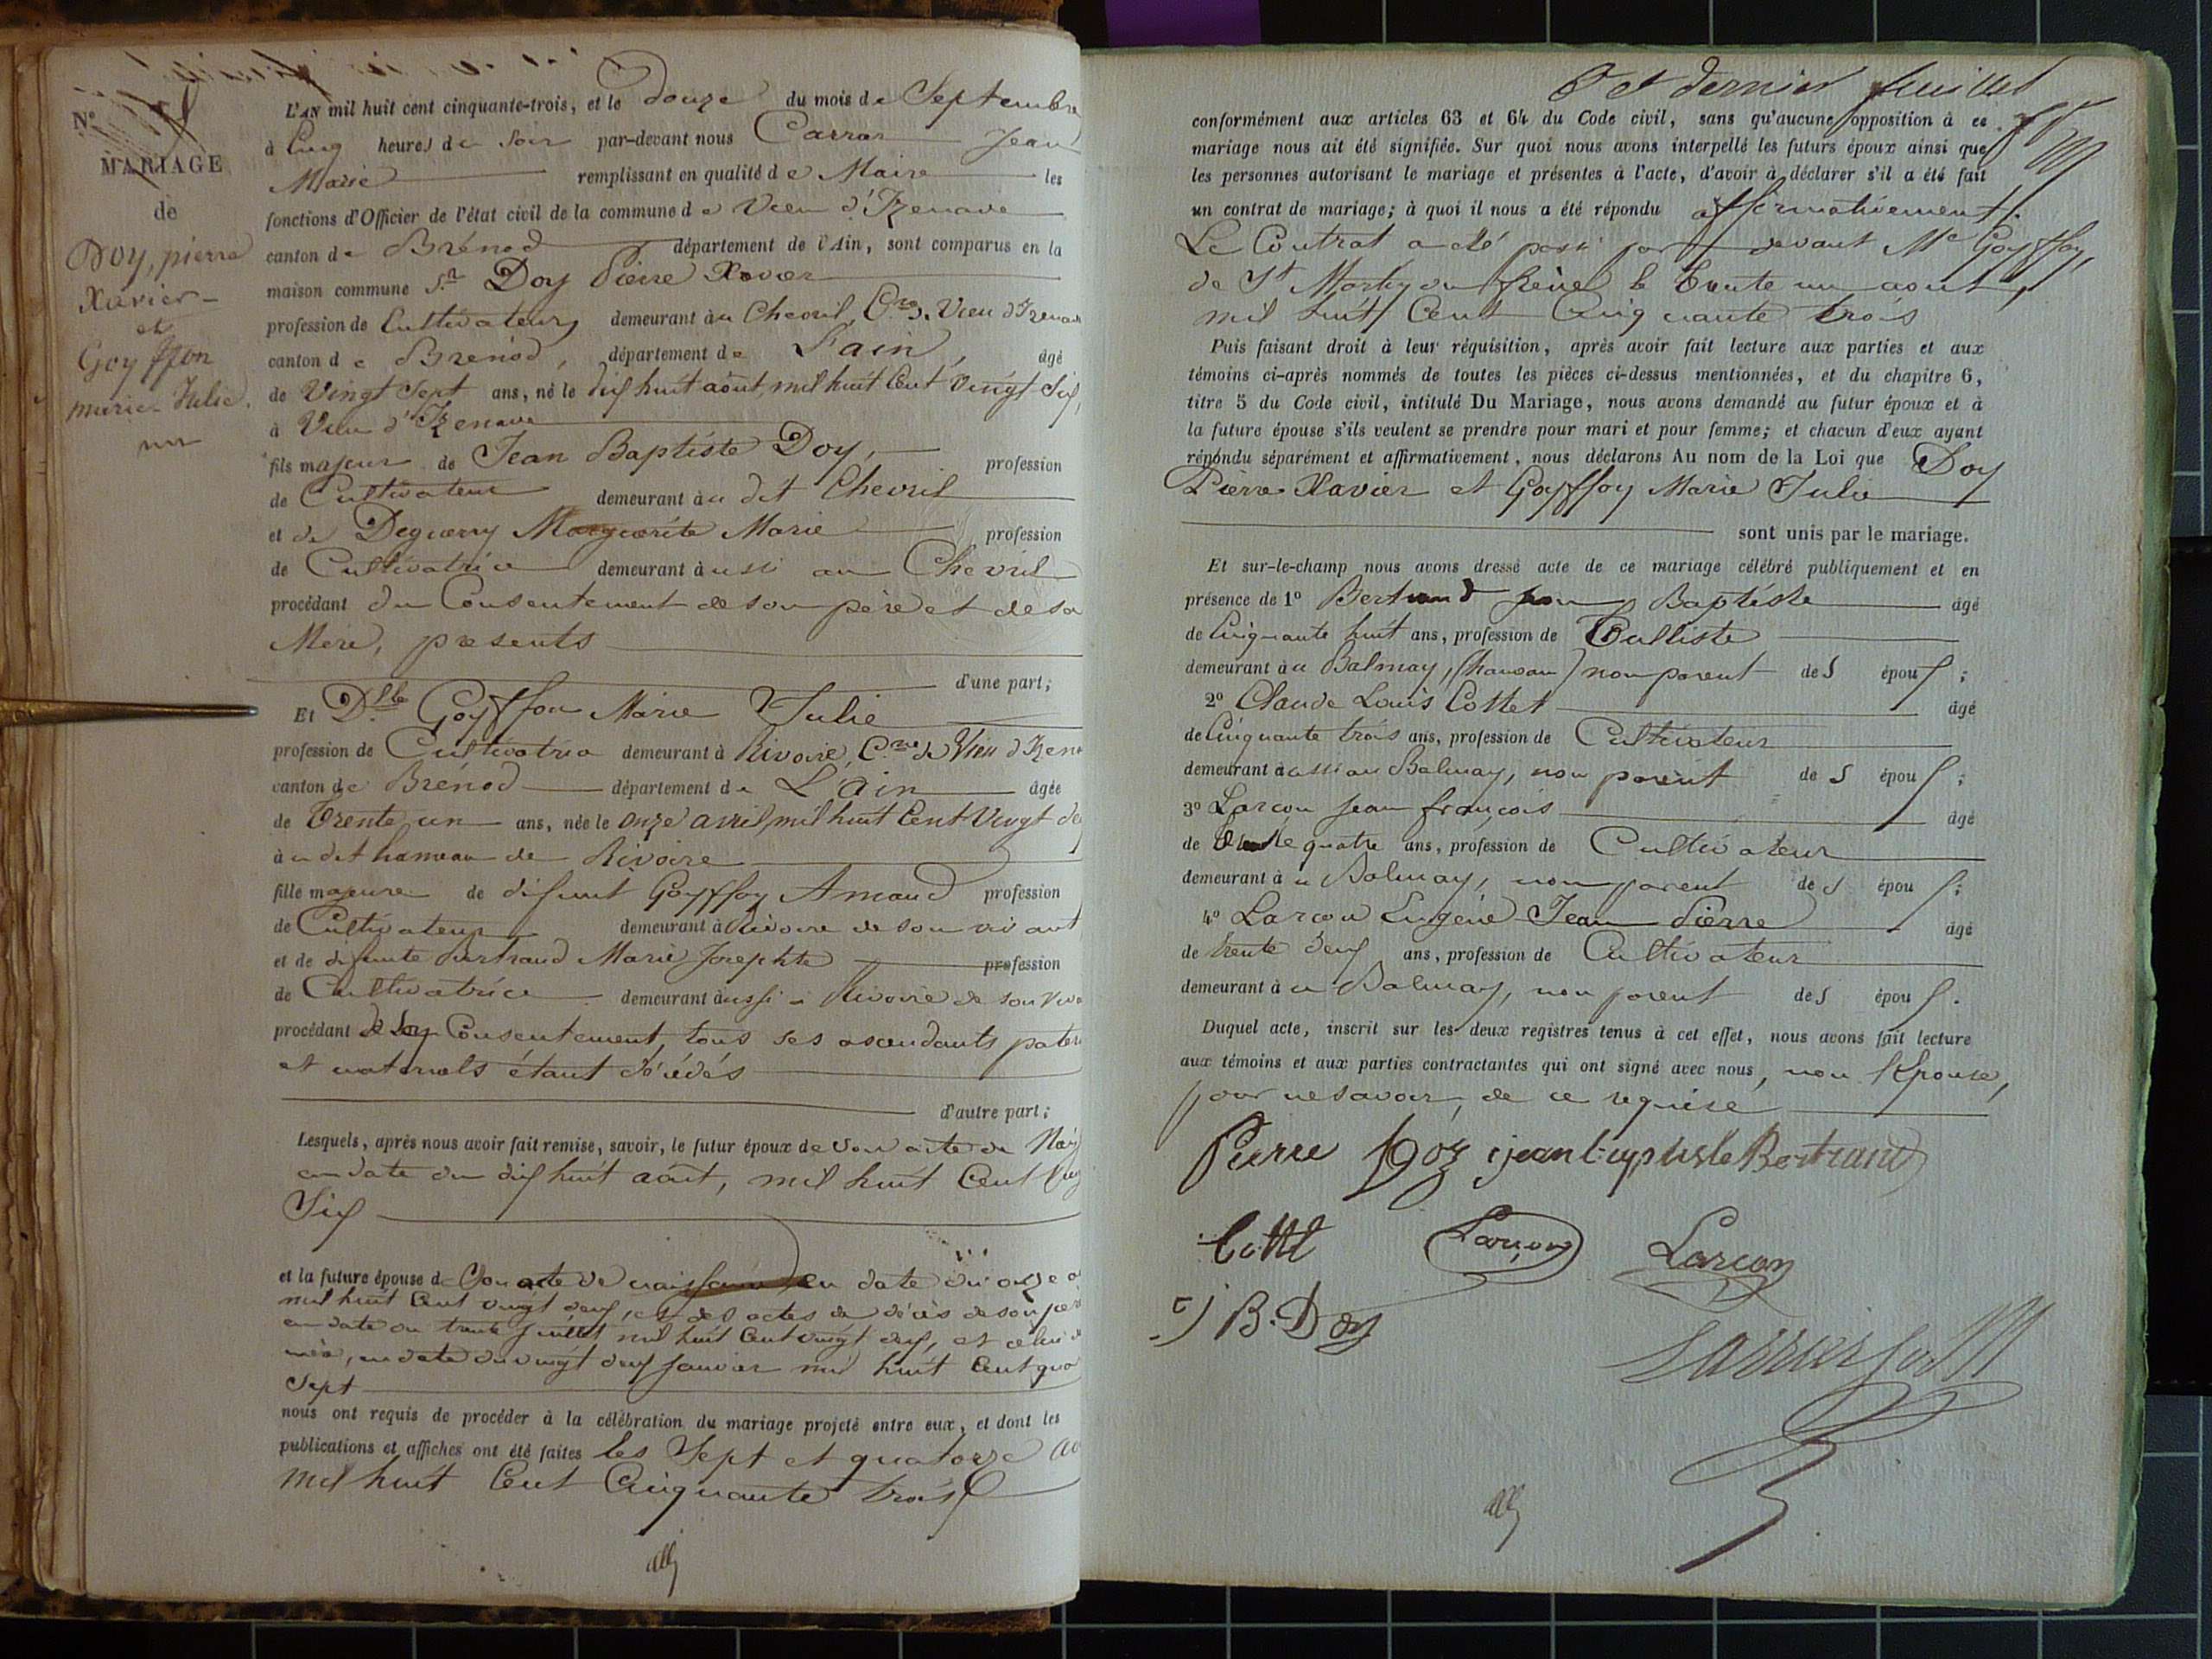 N°
MARIAGE
de
Doy, pierre
Xavier
et
Goyffon
marie-Julie.
L'AN mil huit cent cinquante-trois, et le douze du mois de Septembre
à Cinq heures du Soir par-devant nous Carrar Jean
Marie remplissant en qualité de Maire les
fonctions d'Officier de l'état civil de la commune de Vieu d'Izenave
canton de Brénod département de l'Ain, sont comparus en la
maison commune Sr Doy Pierre Xavier
profession de Cultivateur demeurant au Chevril, Cne de Vieu d'Izenave
canton de Brénod, département de L'ain, âgé
de Vingt Sept ans, né le dix huit août, mil huit Cent vingt Six,
à Vieu d'Izenave
fils majeur de Jean Baptiste Doy, profession
de Cultivateur demeurant au dit Chevril
et de Deguerry Marguerite Marie profession
de Cultivatrice demeurant aussi au Chevril
procédant du Consentement de son père et de sa
Mère, présents
d'une part;
Et Dlle Goyffon Marie Julie
profession de Cultivatrice demeurant à Rivoire, Cne de Vieu d'Izen
canton de Brénod département de L'ain âgée
de Trente un ans, née le onze avril, mil huit Cent Vingt de
au dit hameau de Rivoire
fille majeure de défunt Goyffon Amand profession
de Cultivateur demeurant à Rivoire de son vivant
et de défunte Bertrand Marie Josephte profession
de Cultivatrice demeurant aussi à Rivoire de son viva
procédant de Son Consentement, tous ses ascendants pater
et maternels étant décédés
d'autre part;
Lesquels, après nous avoir fait remise, savoir, le futur époux de son acte de Nai
en date du dix huit août, mil huit Cent Ving
Six
et la future épouse de Son acte de naissance en date du onze a
mil huit Cent vingt deux, et des actes de décès de son père
en date du trente juillet mil huit Cent vingt deux, et celui de
mère, en date du vingt deux janvier mil huit Cent qua
Sept
nous ont requis de procéder à la célébration du mariage projeté entre eux, et dont les
publications et affiches ont été faites les Sept et quatorze ao
mil huit Cent Cinquante trois
6 et dernier feuillet
conformément aux articles 63 et 64 du Code civil, sans qu'aucune opposition à ce
mariage nous ait été signifiée. Sur quoi nous avons interpellé les futurs époux ainsi que
les personnes autorisant le mariage et présentes à l'acte, d'avoir à déclarer s'il a été fait
un contrat de mariage; à quoi il nous a été répondu affirmativement.
Le Contrat a été passé par devant Me Goyffon,
de St Martin du frêne le trente un août,
mil huit Cent Cinquante trois
Puis faisant droit à leur réquisition, après avoir fait lecture aux parties et aux
témoins ci-après nommés de toutes les pièces ci-dessus mentionnées, et du chapitre 6,
titre 5 du Code civil, intitulé Du Mariage, nous avons demandé au futur époux et à
la future épouse s'ils veulent se prendre pour mari et pour femme; et chacun d'eux ayant
répondu séparément et affirmativement, nous déclarons Au nom de la Loi que Doy
Pierre Xavier et Goyffon Marie Julie
sont unis par le mariage.
Et sur-le-champ nous avons dressé acte de ce mariage célébré publiquement et en
présence de 1° Bertrand Jean Baptiste âgé
de Cinquante huit ans, profession de Tulliste
demeurant au Balmay, (hameau) non parent des époux;
2° Claude Louis Cottet âgé
de Cinquante trois ans, profession de Cultivateur
demeurant aussi au Balmay, non parent des époux;
3° Larçon Jean françois âgé
de quatre ans, profession de Cultivateur
demeurant au Balmay, non parent des époux;
4° Larçon Eugène Jean Pierre âgé
de trente deux ans, profession de Cultivateur
demeurant au Balmay, non parent des époux.
Duquel acte, inscrit sur les deux registres tenus à cet effet, nous avons fait lecture
aux témoins et aux parties contractantes qui ont signé avec nous, non l'Épouse,
pour ne savoir, de ce requise
Pierre Doy jean baptiste Bertrand
Cottet Larçon Larçon
J B. Doy